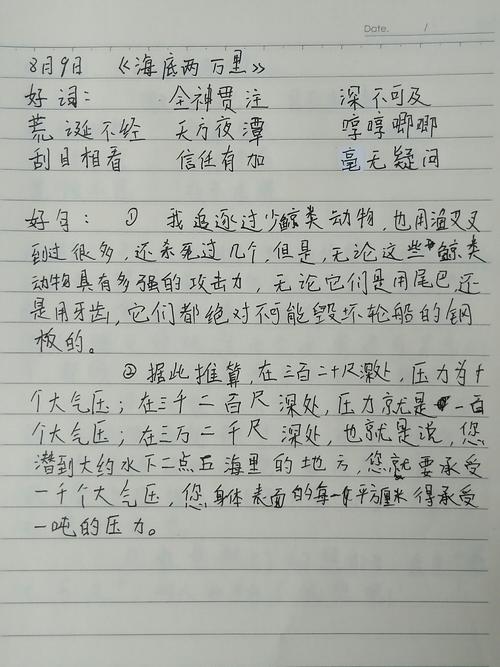 Date.      /
8月9日 《海底两万里》
好词： 全神贯注 深不可及
荒诞不经 天方夜潭 哼哼唧唧
刮目相看 信任有加 毫无疑问
好句： ① 我追逐过少鲸类动物，也用渔叉叉
到过很多，还杀死过几个，但是，无论这些鲸类
动物具有多强的攻击力，无论它们是用尾巴还
是用牙齿，它们都绝对不可能毁坏轮船的钢
板的。
② 据此推算，在三百二十尺深处，压力为十
个大气压；在三千二百尺深处，压力就是一百
个大气压；在三万二千尺深处，也就是说，您
潜到大约水下二点五海里的地方，您就要承受
一千个大气压，您身体表面的每一平方厘米得承受
一吨的压力。